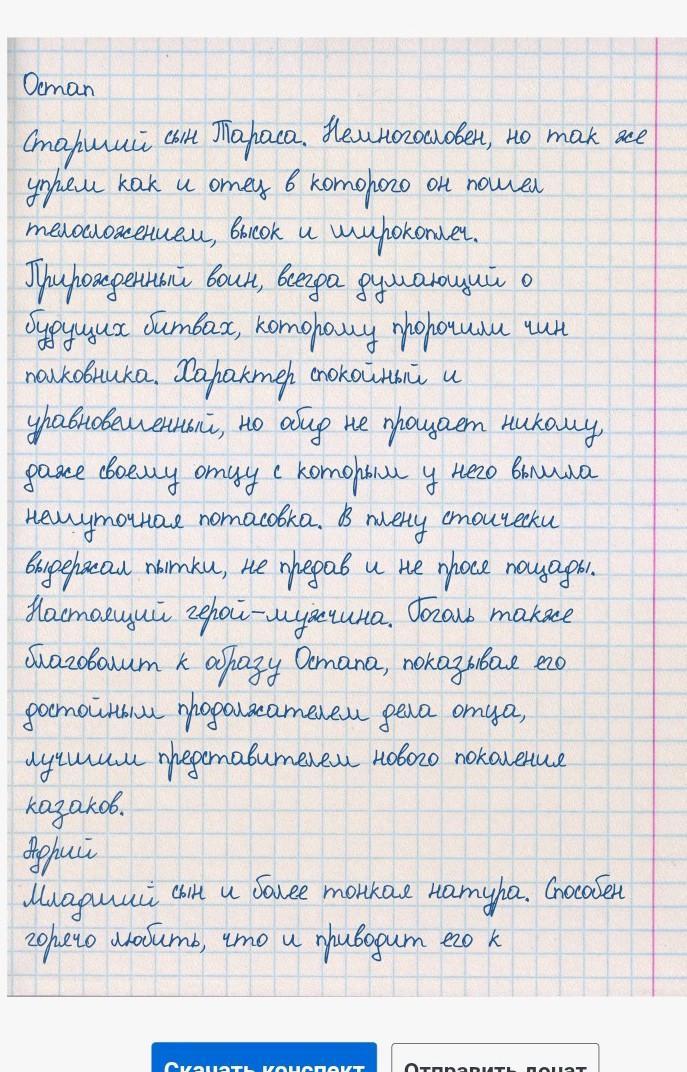 Остап
Старший сын Тараса. Немногословен, но так же
упрям как и отец в которого он пошел
телосложением, высок и широкоплеч.
Прирожденный воин, всегда думающий о
будущих битвах, которому пророчили чин
полковника. Характер спокойный и
уравновешенный, но обид не прощает никому,
даже своему отцу с которым у него вышла
нешуточная потасовка. В плену стоически
выдержал пытки, не предав и не прося пощады.
Настоящий герой-мужчина. Гоголь также
благоволит к образу Остапа, показывая его
достойным продолжателем дела отца,
лучшим представителем нового поколения
казаков.
Адрий
Младший сын и более тонкая натура. Способен
горячо любить, что и приводит его к
Скачать конспект Отправить донат